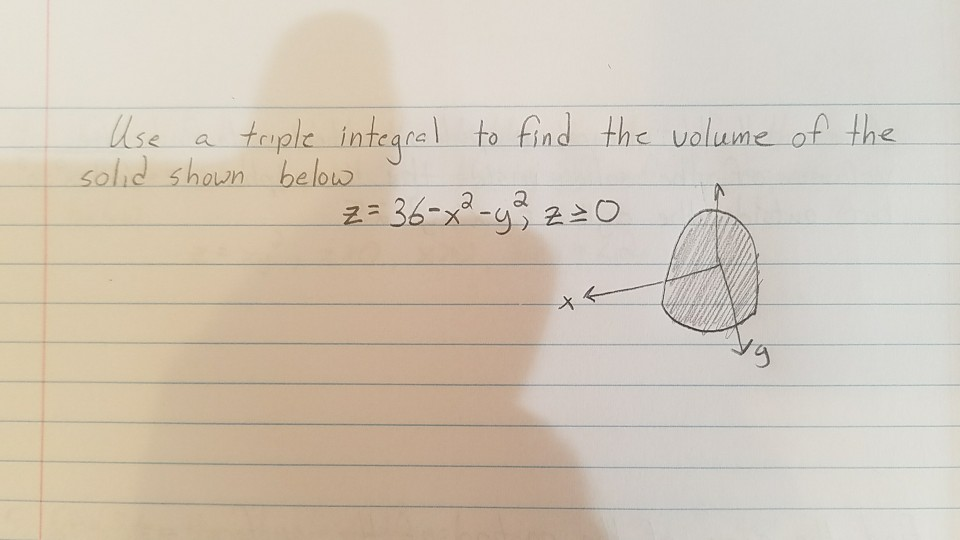 Use a triple integral to find the volume of the
solid shown below
z = 36-x²-y², z ≥ 0
x
y